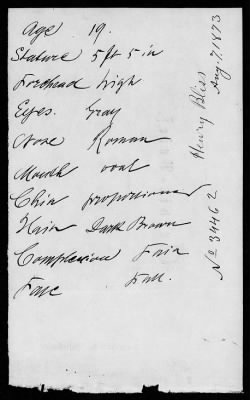 Age 19.
Stature 5 ft 5 in
Forehead high
Eyes. Gray
Nose Roman
Mouth oval
Chin proportioned
Hair Dark Brown
Complexion Fair
Face Full.
No 34462
Henry Bliss
Aug. 7. 1873